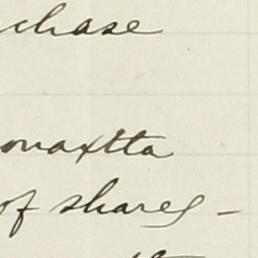 chase
onaxtta
of shares -